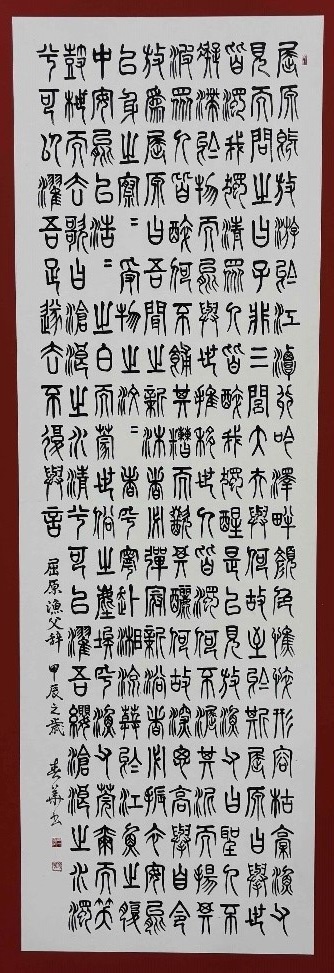 屈原既放游於江潭行吟澤畔顏色憔悴形容枯槁漁父
見而問之曰子非三閭大夫與何故至於斯屈原曰舉世
皆濁我獨清眾人皆醉我獨醒是以見放漁父曰聖人不
凝滯於物而能與世推移世人皆濁何不淈其泥而揚其
波眾人皆醉何不餔其糟而歠其釃何故深思高舉自令
放為屈原曰吾聞之新沐者必彈冠新浴者必振衣安能
以身之察〻受物之汶〻者乎寧赴湘流葬於江魚之腹
中安能以浩〻之白而蒙世俗之塵埃乎漁父莞爾而笑
鼓枻而去歌曰滄浪之水清兮可以濯吾纓滄浪之水濁
兮可以濯吾足遂去不復與言
屈原漁父辭 甲辰之歲 春華書